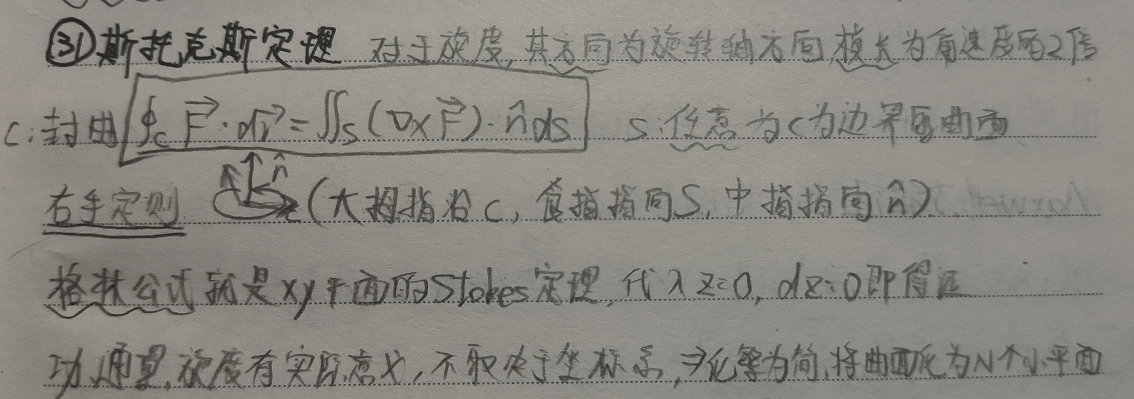 ③斯托克斯定理 对于旋度,其方向为旋转轴方向,模长为角速度的2倍
C:封曲 ∮c F⃗·dr⃗=∬s(∇×F⃗)·n̂ds S:任意为c为边界的曲面
右手定则 n̂ (大拇指沿c,食指指向S,中指指向n̂)
格林公式就是xy平面的Stokes定理,代入z=0,dz=0即得证
功,通量,旋度有实际意义,不取决于坐标系,⇒化繁为简,将曲面化为N个小平面